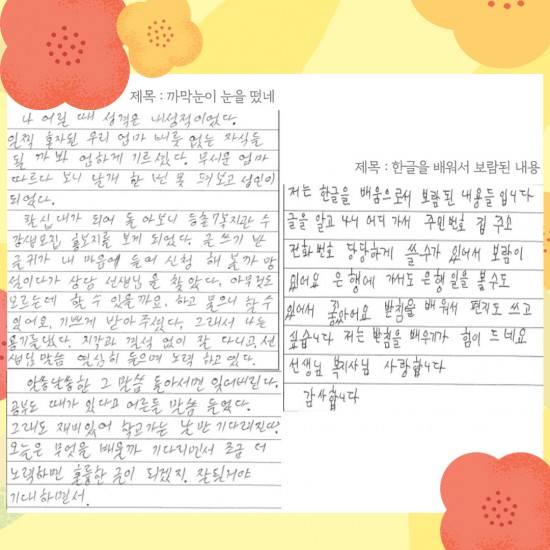 제목 : 까막눈이 눈을 떴네
나 어릴 때 성격은 내성적이었다.
일찍 혼자된 우리 엄마 버릇 없는 자식들
될 까 봐 엄하게 기르셨다. 무서운 엄마
따르다 보니 날개 한 번 못 펴보고 성인이
되었다.
팔십 대가 되어 돌 아보니 등촌7복지관 수
강생모집 홍보지를 보게 되었다. 글 쓰기 반
글귀가 내 마음에 들어 신청 해 볼까 망
설이다가 상담 선생님 을 찾 았다. 아무것도
모르는데 할 수 있을까요. 하고 물으니 할 수
있어요. 기쁘게 받아 주셨다. 그래서 나는
용기를 냈다. 지각과 결석 없이 잘 다니고, 선
생님 말씀 열심히 들으며 노력 하고 있다.
알쏭달쏭한 그 말씀 돌아서면 잊어버린다.
공부도 때가 있다고 어른들 말씀 들었다.
그래도 재미있어 학교가는 날 만 기다려진다
오늘은 무엇을 배울까 기다리면서 조금 더
노력하면 훌륭한 글이 되겠지. 잘될거야
기대하면서.
제목 : 한글을 배워서 보람된 내용
저는 한글을 배움으로서 보람 된 내용들 입니다
글을 알고 나니 어디 가서 주민번호 집 주소
전화번호 당당하게 쓸수가 있어서 보람이
있어요 은행에 가서도 은행 일을 볼수도
있어서 좋았어요 받침을 배워서 편지도 쓰고
싶습니다 저는 받침을 배우기가 힘이 드네요
선생님 복지사님 사랑합니다
감사합니다